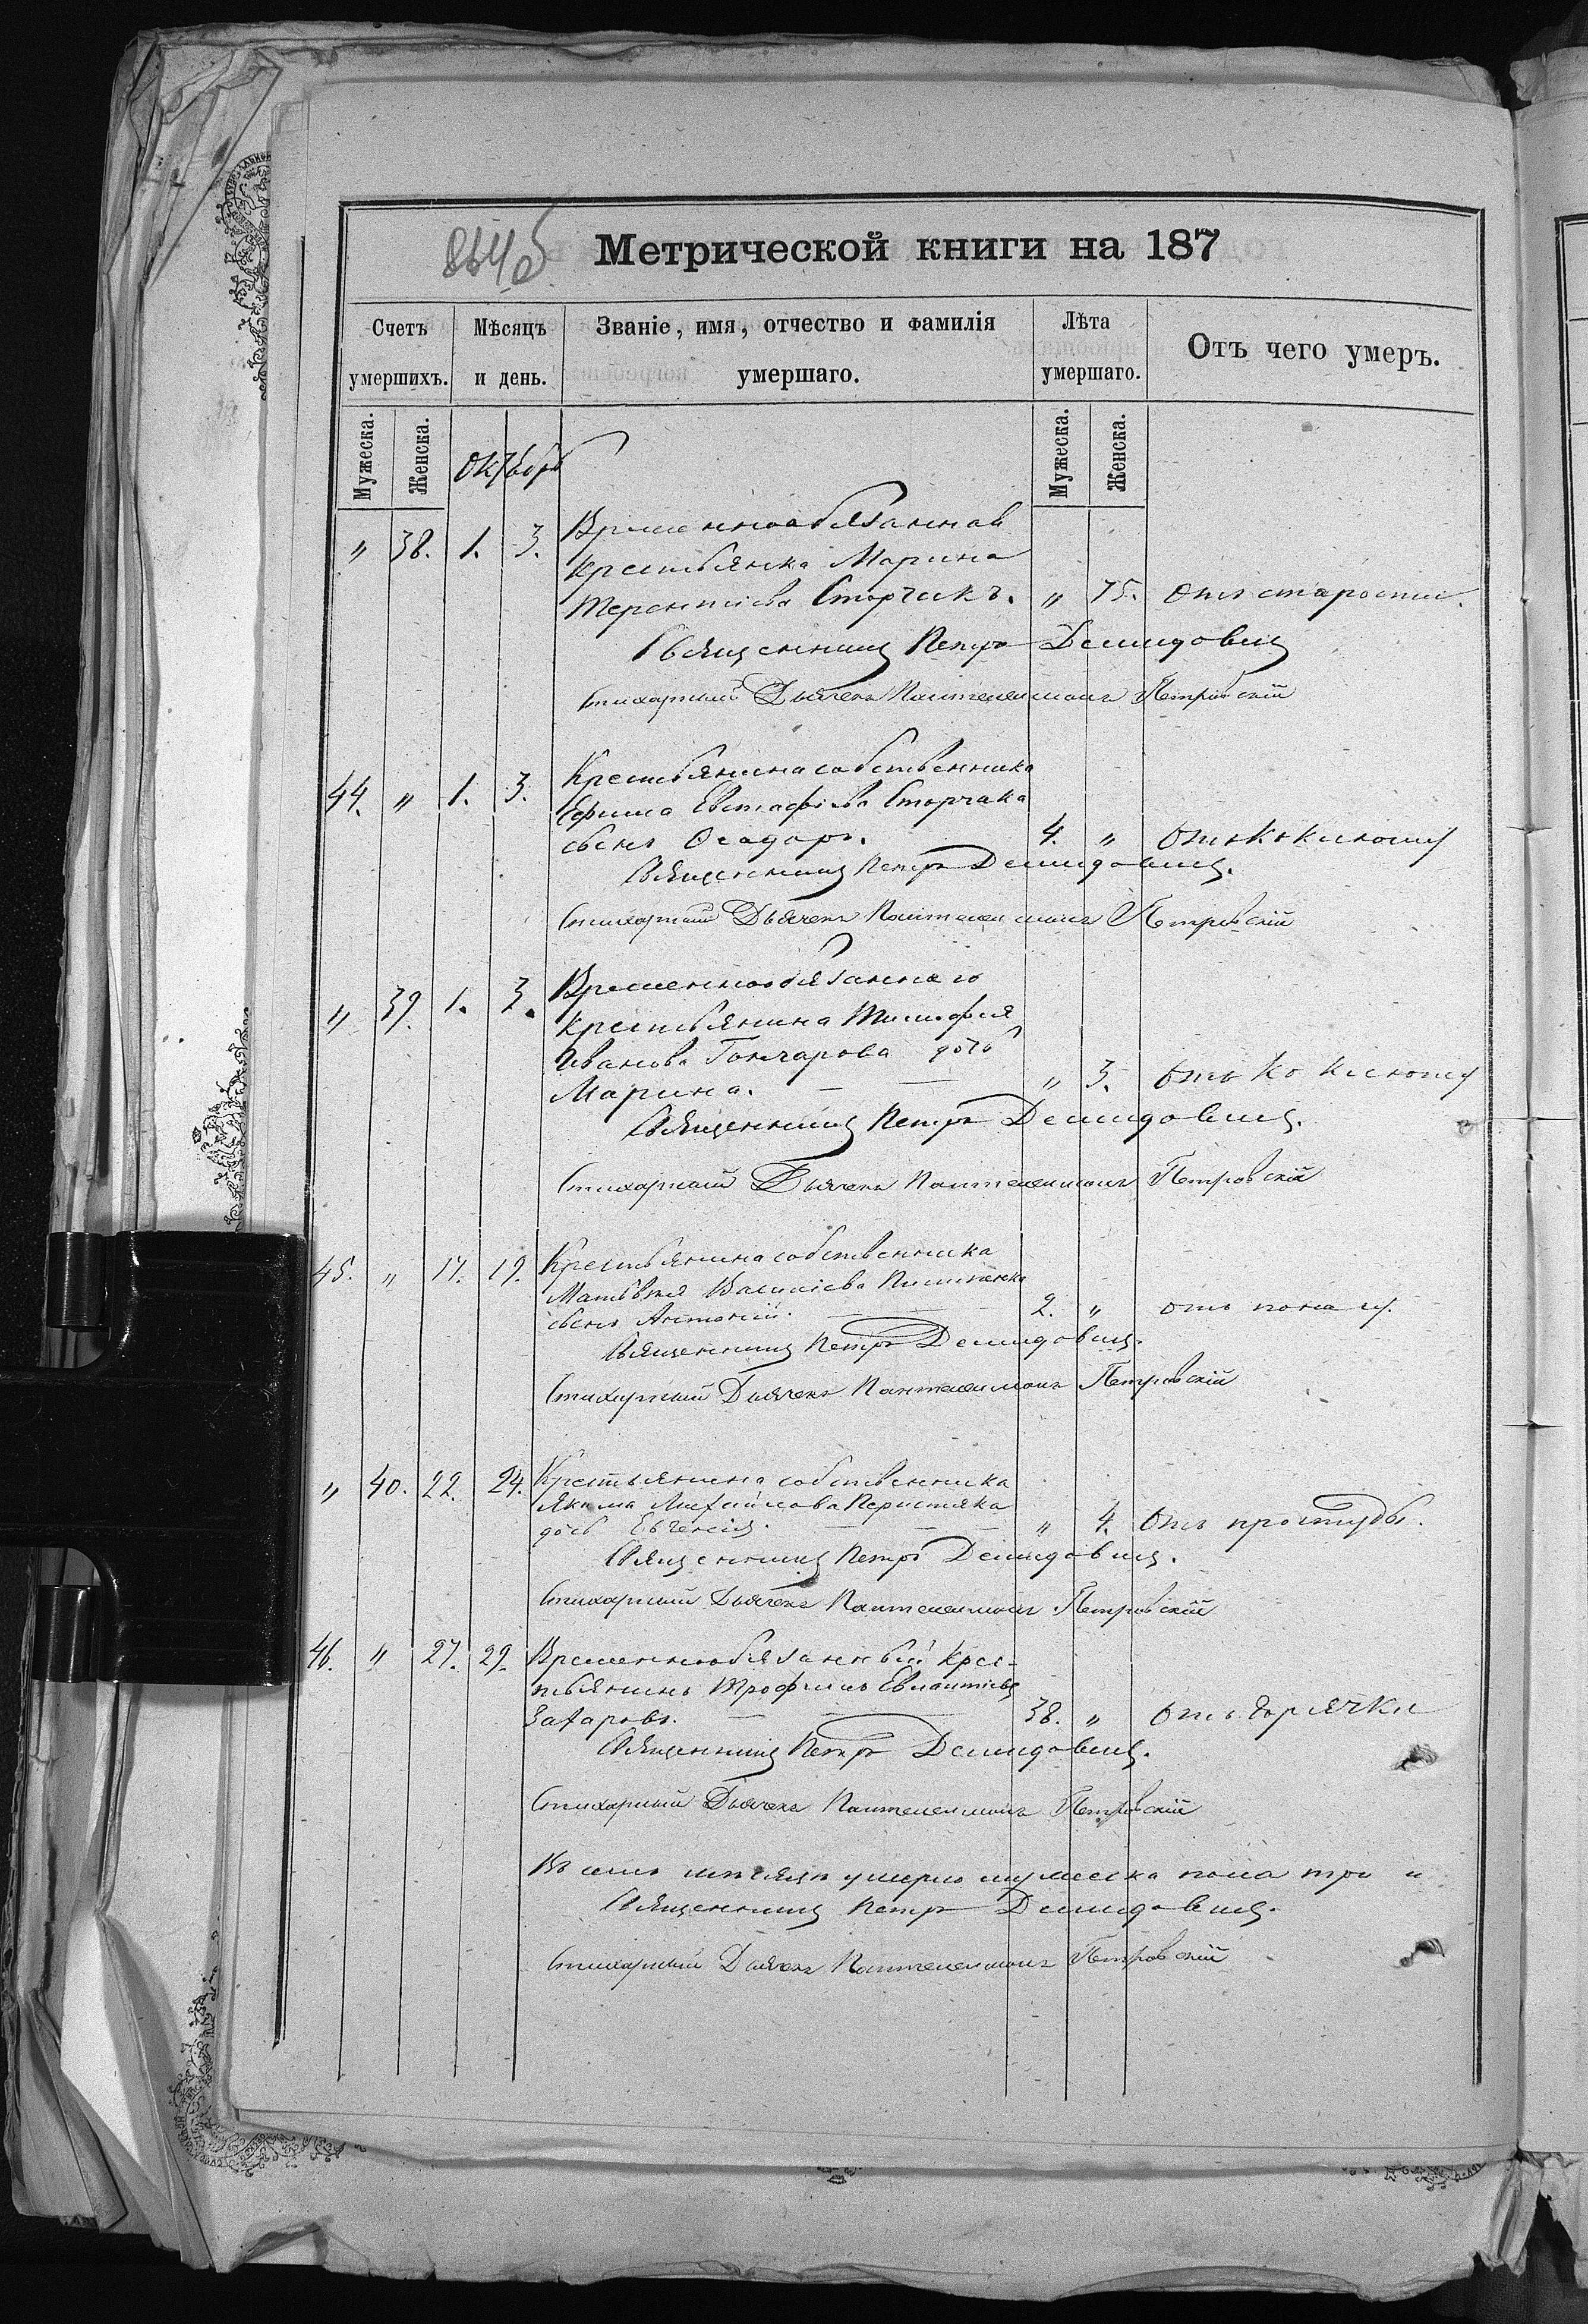 864 об
Метрической книги на 187
Счетъ умершихъ.
Мѣсяцъ и день.
Званіе, имя, отчество и фамилія умершаго.
Лѣта умершаго.
Отъ чего умеръ.
Мужеска.
Женска.
Мужеска.
Женска.
Октябрь
Временнообязанная
" 38. 1. 3. крестьянка Марина
Терентіева Сторчакъ. " 75. Отъ старости.
Священникъ Петръ Демидовичъ
Стихарный Дьячекъ Пантелеимонъ Петровскій
Крестьянина собственника
44. " 1. 3. Ефима Евстафіева Сторчака
сынъ Ѳеодоръ. 4. " Отъ коклюшу
Священникъ Петръ Демидовичъ.
Стихарный Дьячекъ Пантелеимонъ Петровскій
Временнообязаннаго
" 39. 1. 3. крестьянина Тимофея
Иванова Гончарова дочь
Марина. — — " 3. Отъ коклюшу
Священникъ Петръ Демидовичъ.
Стихарный Дьячекъ Пантелеимонъ Петровскій
45. " 17. 19. Крестьянина собственника
Матѳѣя Василіева
сынъ Антоній. — — 2. " отъ поносу.
Священникъ Петръ Демидовичъ.
Стихарный Дьячекъ Пантелеимонъ Петровскій
" 40. 22. 24. Крестьянина собственника
Якима Михайлова
дочь Евгенія. — — — " 4. Отъ простуды.
Священникъ Петръ Демидовичъ.
Стихарный Дьячекъ Пантелеимонъ Петровскій
46. " 27. 29. Временнообязанный крес-
тьянинъ Трофимъ
Захаровъ. — — — 38. " Отъ горячки
Священникъ Петръ Демидовичъ.
Стихарный Дьячекъ Пантелеимонъ Петровскій
Въ семъ мѣсяцѣ умерло мужеска пола три и
Священникъ Петръ Демидовичъ.
Стихарный Дьячекъ Пантелеимонъ Петровскій